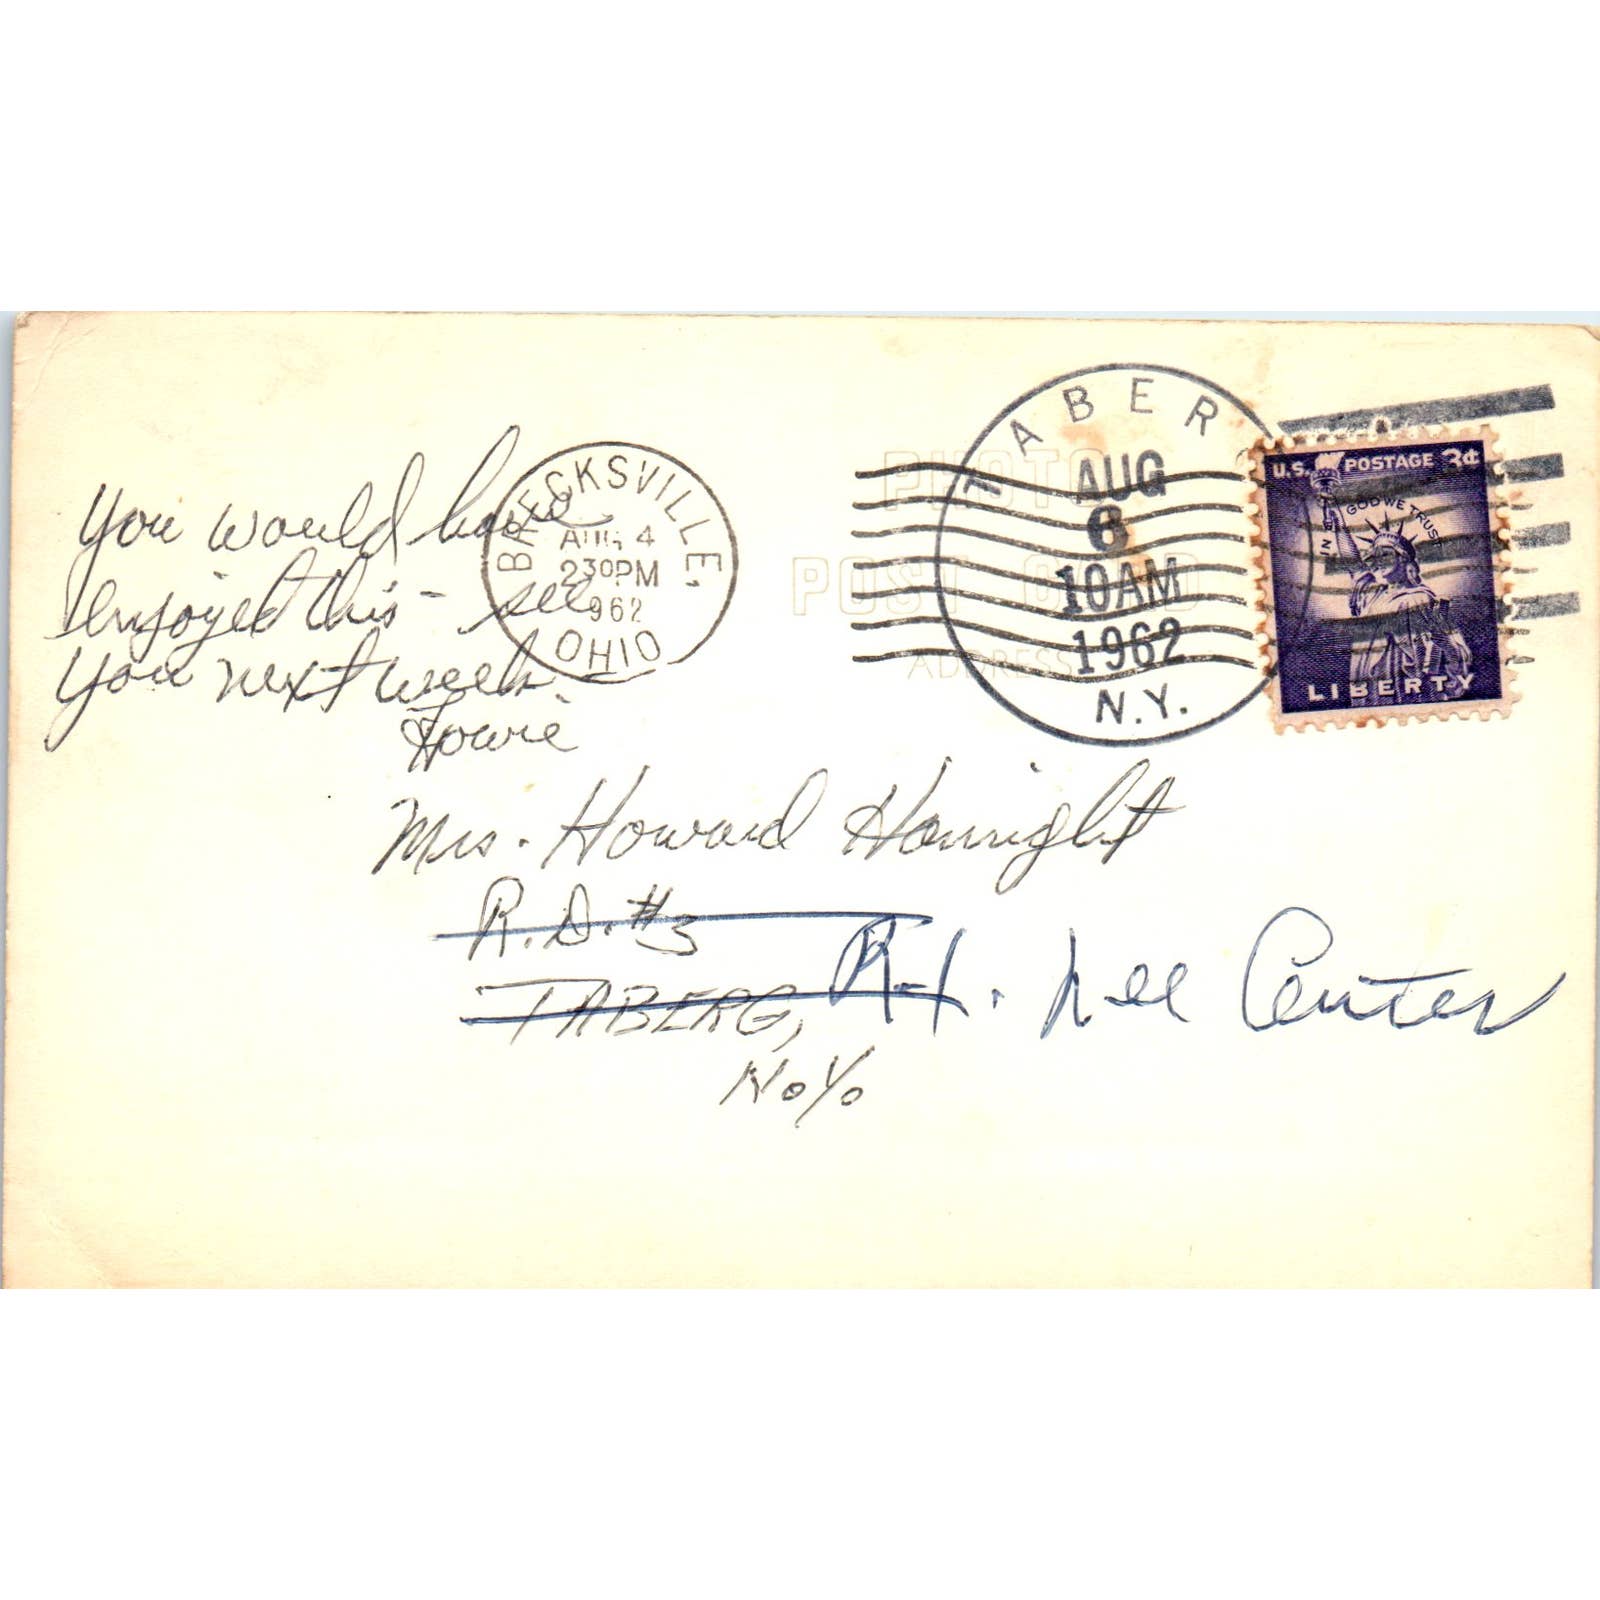 You would have
enjoyed this - see
you next week.
Howie
BRECKSVILLE,
AUG 4
230PM
1962
OHIO
TABERG
AUG
6
10AM
1962
N.Y.
U.S. POSTAGE 3¢
IN GOD WE TRUST
LIBERTY
PHOTO
POST CARD
ADDRESS
Mrs. Howard
R.D. #3
TABERG,
N.Y.
Lee Center